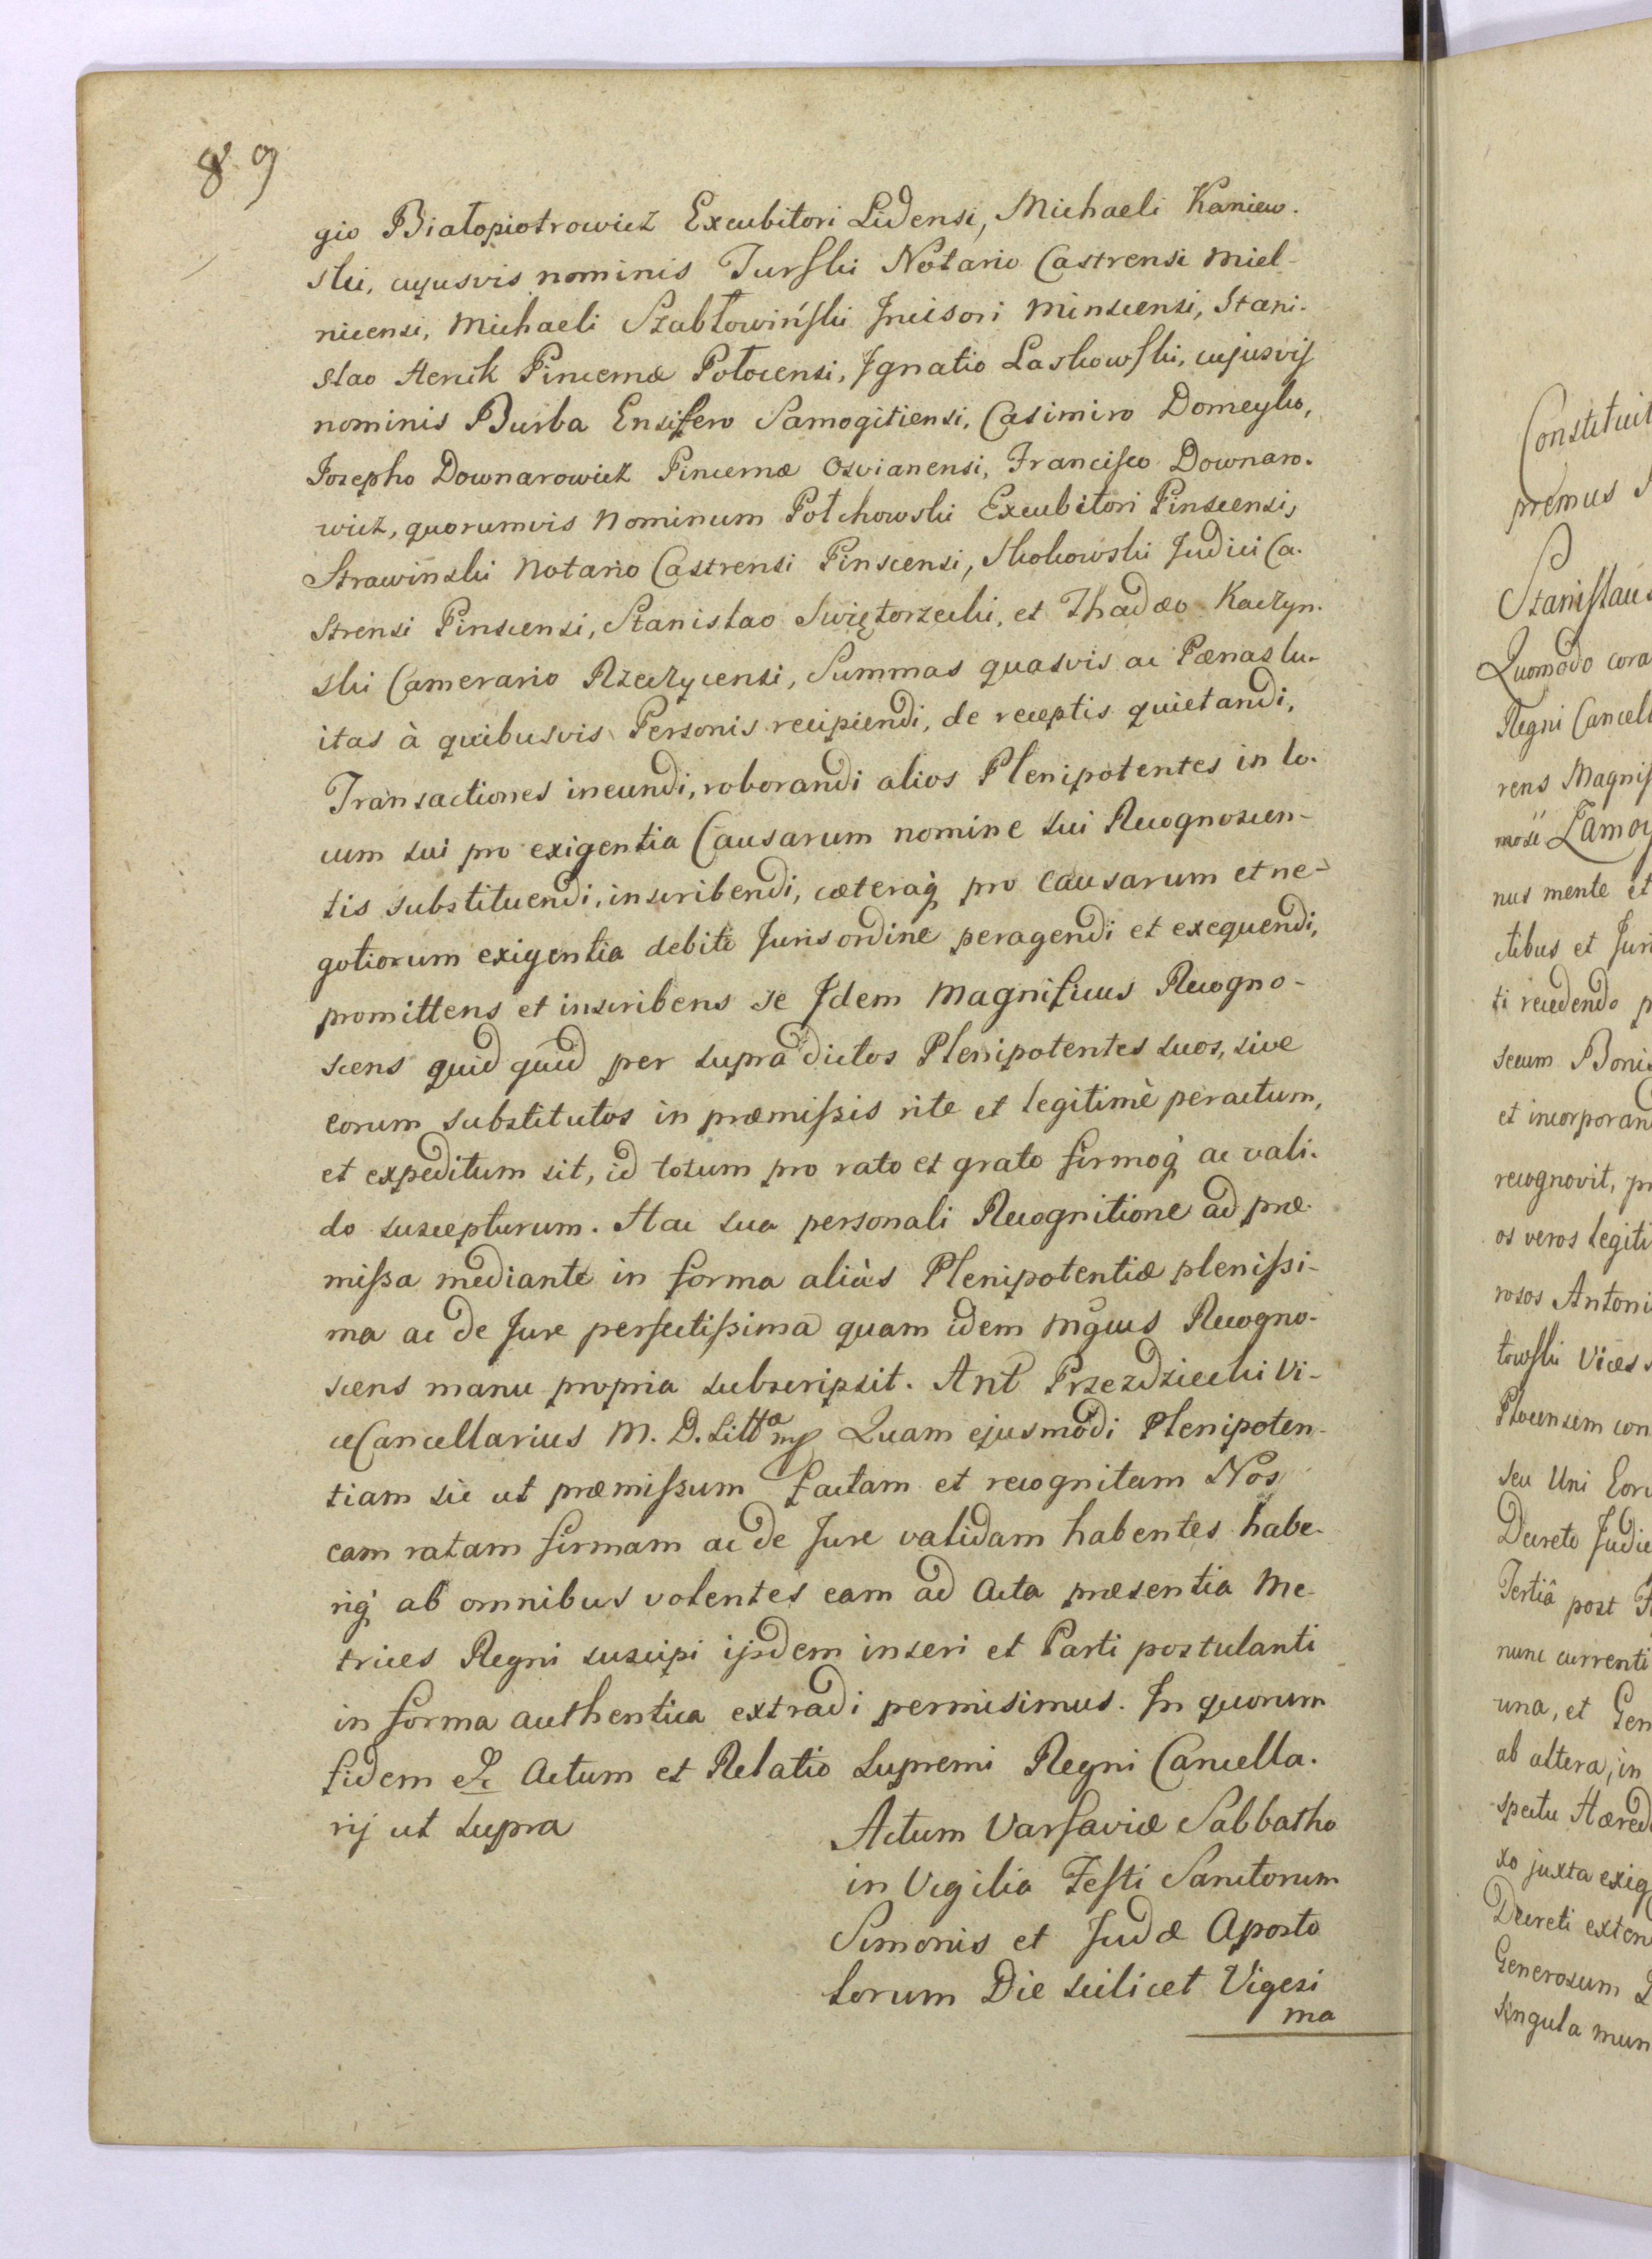 89
gio Białopiotrowicz Excubitori Lidensi, Michaeli Kaniew-
ski, cujusvis nominis Turski Notario Castrensi Miel-
nicensi, Michaeli Szabłowiński Incisori Minscensi, Stani-
slao Hercik Pincernæ Połocensi, Ignatio Laskowski, cujusvis
nominis Burba Ensifero Samogitiensi, Casimiro Domeyko,
Josepho Downarowicz Pincernæ Osvianensi, Francisco Downaro-
wicz, quorumvis Nominum Połchowski Excubitori Pinscensi,
Strawiński Notario Castrensi Pinscensi, Skokowski Judici Ca-
strensi Pinscensi, Stanislao Swiętorzecki, et Thadæo Kaczyn-
ski Camerario Rzeczycensi, Summas quasvis ac Pænas lu-
itas à quibusvis Personis recipiendi, de receptis quietandi,
Transactiones ineundi, roborandi alios Plenipotentes in lo-
cum sui pro exigentia Causarum nomine sui Recognoscen-
tis substituendi, inscribendi, cæteraq́ pro Causarum et ne-
gotiorum exigentia debite Juris ordine peragendi et exequendi,
promittens et inscribens se Idem Magnificus Recogno-
scens quid quid per supra dictos Plenipotentes suos, sive
eorum substitutos in præmissis rite et legitimè peractum,
et expeditum sit, id totum pro rato et grato firmoq́ ac vali-
do suscepturum. Hac sua personali Recognitione ad præ-
missa mediante in forma aliàs Plenipotentiæ plenissi-
ma ac de Jure perfectissima quam idem Mgcus Recogno-
scens manu propria subscripsit. Ant Przezdziecki Vi-
ceCancellarius M. D. Litt̃æ mp Quam ejusmodi Plenipoten-
tiam sic ut præmissum factam et recognitam Nos
eam ratam firmam ac de Jure validam habentes habe-
riq́ ab omnibus volentes eam ad Acta præsentia Me-
trices Regni suscipi ijsdem inseri et Parti postulanti
in forma authentica extradi permisimus. In quorum
fidem &c Actum et Relatio Supremi Regni Cancella-
rij ut supra
Actum Varsaviæ Sabbatho
in Vigilia Festi Sanctorum
Simonis et Judæ Aposto
lorum Die scilicet Vigesi
ma
Constituit
premus
Stanislaus
Quomodo cora
Regni Cancell
rens Magnif
Zamoy
nus mente et
ctibus et Juri
ti recedendo p
secum Bonis
et incorporan
recognovit, pr
os veros legiti
rosos Antoni
towski Vices
Plocensem con
seu Uni Eor
Decreto Judic
Tertiâ post F
nunc currenti
una, et Gen
ab altera, in
spectu Hæred
xo juxta exig
Decreti exten
Generosum
singula mun